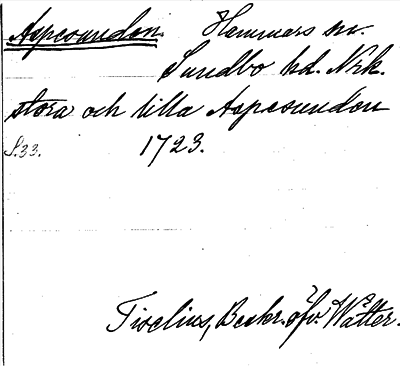 Aspesunden. Hemmars sn.
Sundbo hd. Nrk.
stora och lilla Aspesunden
S. 33. 1723.
Tiselius, Beskr. öfv. Wätter.